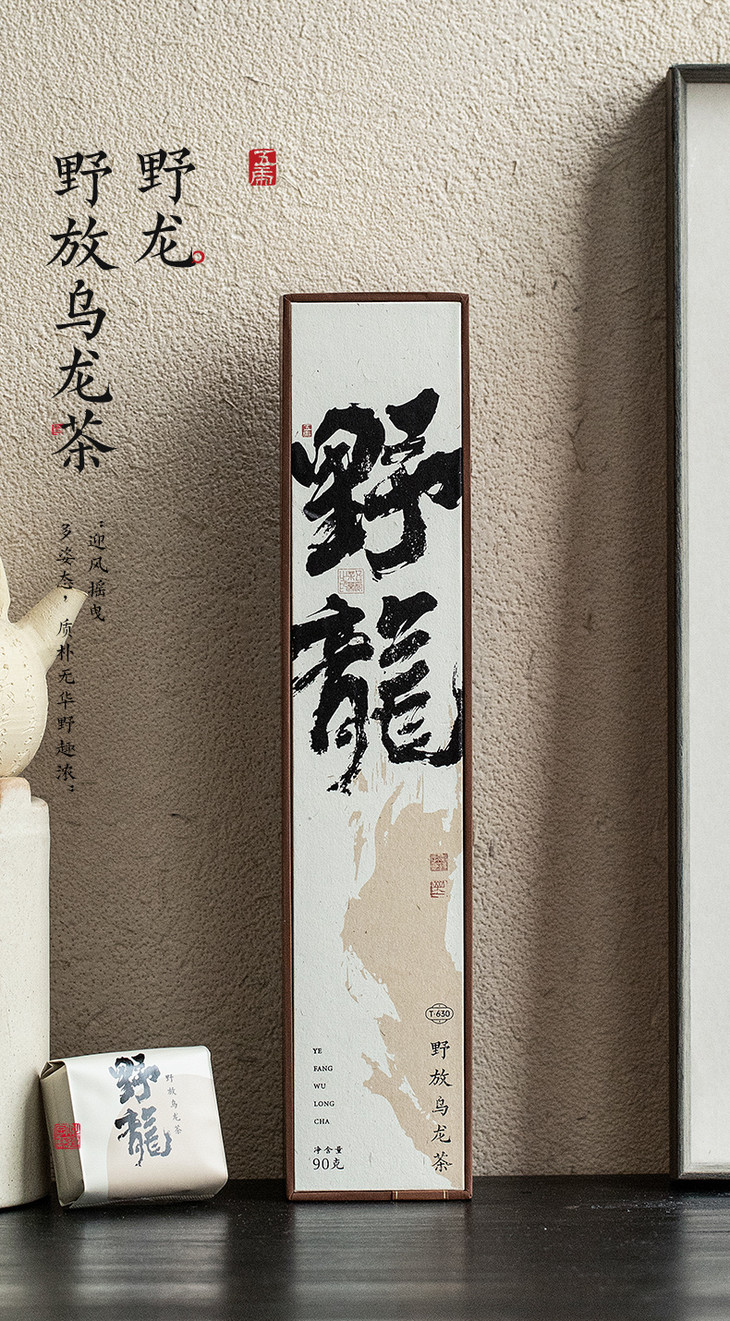 野龙
野放乌龙茶
“迎风摇曳
多姿态，质朴无华野趣浓”
野龍
T·630
野放乌龙茶
YE
FANG
WU
LONG
CHA
净含量
90克
野龍
野放乌龙茶